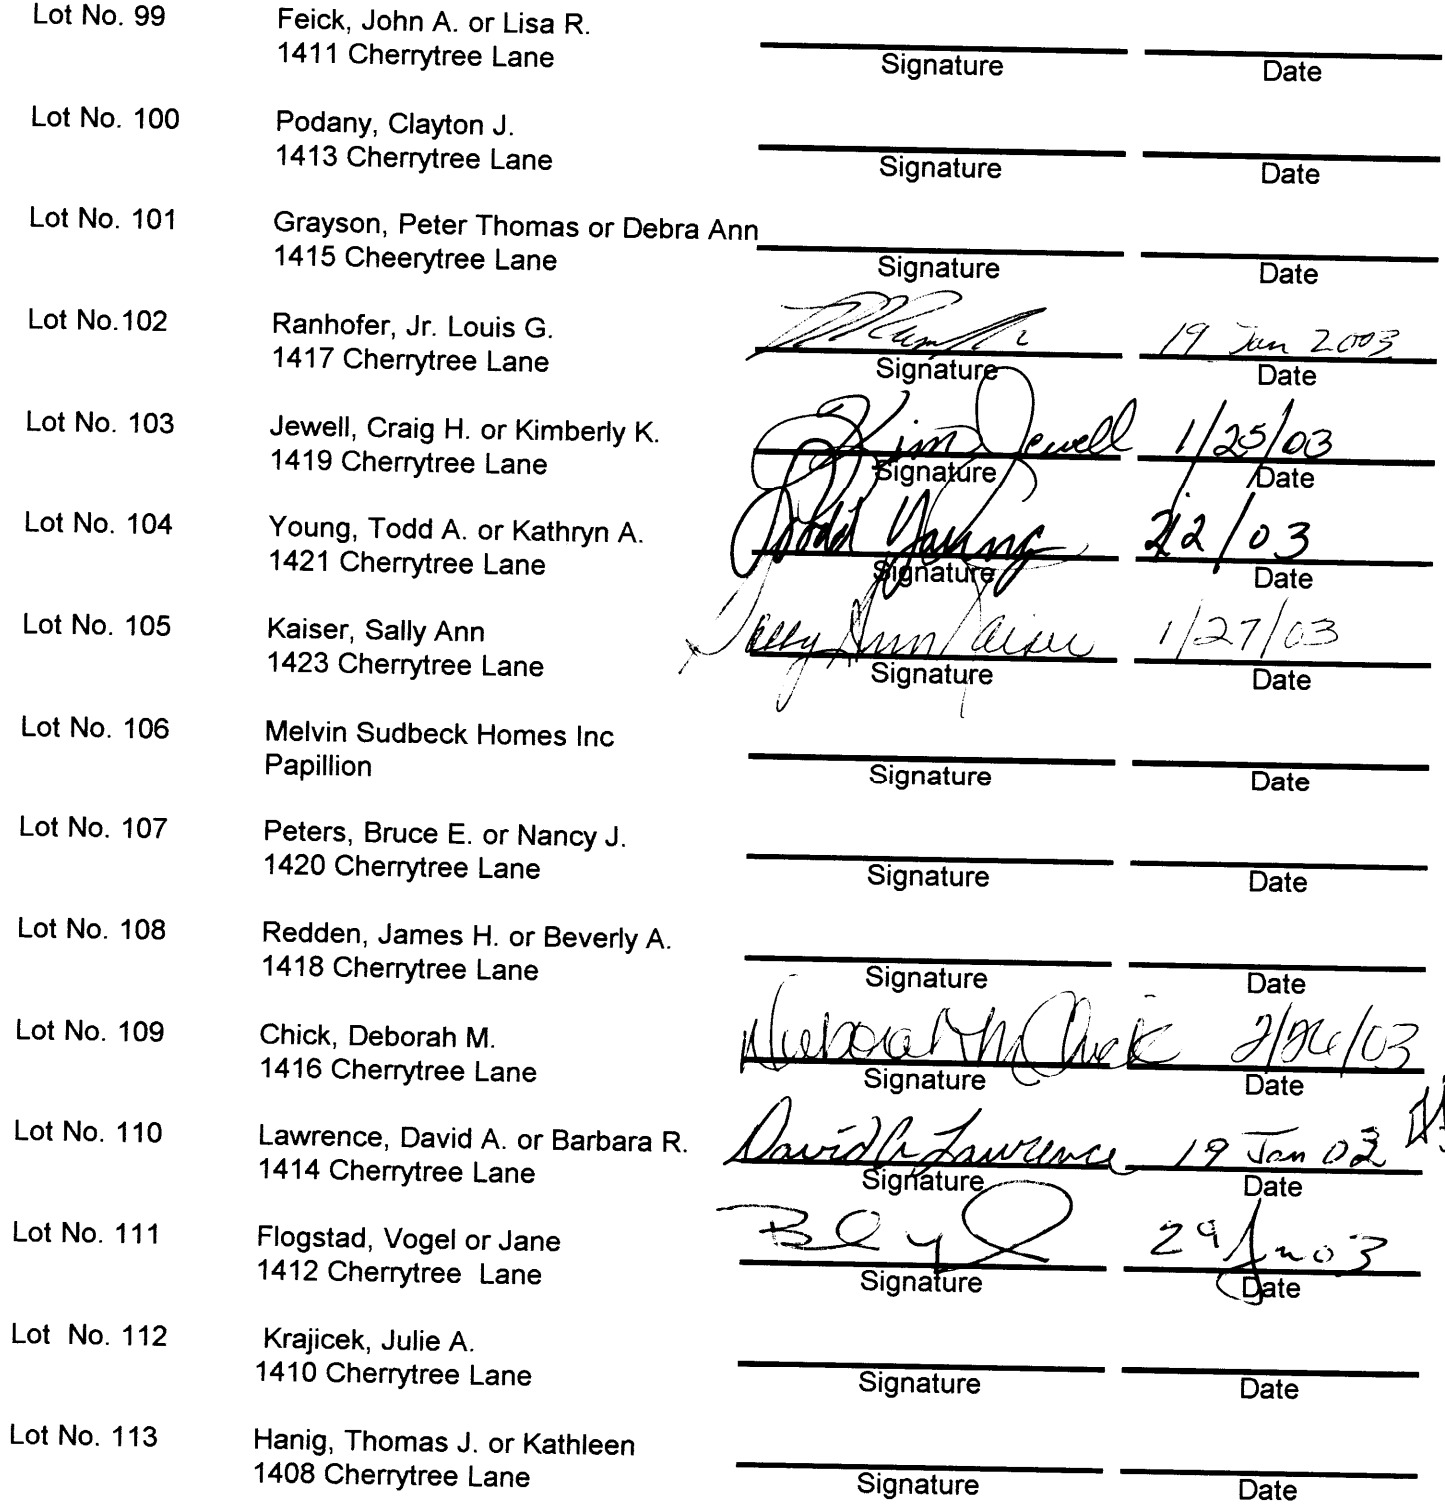 Lot No. 99 Feick, John A. or Lisa R.
1411 Cherrytree Lane
Signature Date
Lot No. 100 Podany, Clayton J.
1413 Cherrytree Lane
Signature Date
Lot No. 101 Grayson, Peter Thomas or Debra Ann
1415 Cheerytree Lane
Signature Date
Lot No.102 Ranhofer, Jr. Louis G. 19 Jan 2003
1417 Cherrytree Lane
Signature Date
Lot No. 103 Jewell, Craig H. or Kimberly K. Kim Jewell 1/25/03
1419 Cherrytree Lane
Signature Date
Lot No. 104 Young, Todd A. or Kathryn A. Todd Young 2/2/03
1421 Cherrytree Lane
Signature Date
Lot No. 105 Kaiser, Sally Ann Sally Ann Kaiser 1/27/03
1423 Cherrytree Lane
Signature Date
Lot No. 106 Melvin Sudbeck Homes Inc
Papillion
Signature Date
Lot No. 107 Peters, Bruce E. or Nancy J.
1420 Cherrytree Lane
Signature Date
Lot No. 108 Redden, James H. or Beverly A.
1418 Cherrytree Lane
Signature Date
Lot No. 109 Chick, Deborah M. Deborah M Chick 2/26/03
1416 Cherrytree Lane
Signature Date
Lot No. 110 Lawrence, David A. or Barbara R. David A Lawrence 19 Jan 03
1414 Cherrytree Lane
Signature Date
Lot No. 111 Flogstad, Vogel or Jane 29 Jan 03
1412 Cherrytree Lane
Signature Date
Lot No. 112 Krajicek, Julie A.
1410 Cherrytree Lane
Signature Date
Lot No. 113 Hanig, Thomas J. or Kathleen
1408 Cherrytree Lane
Signature Date